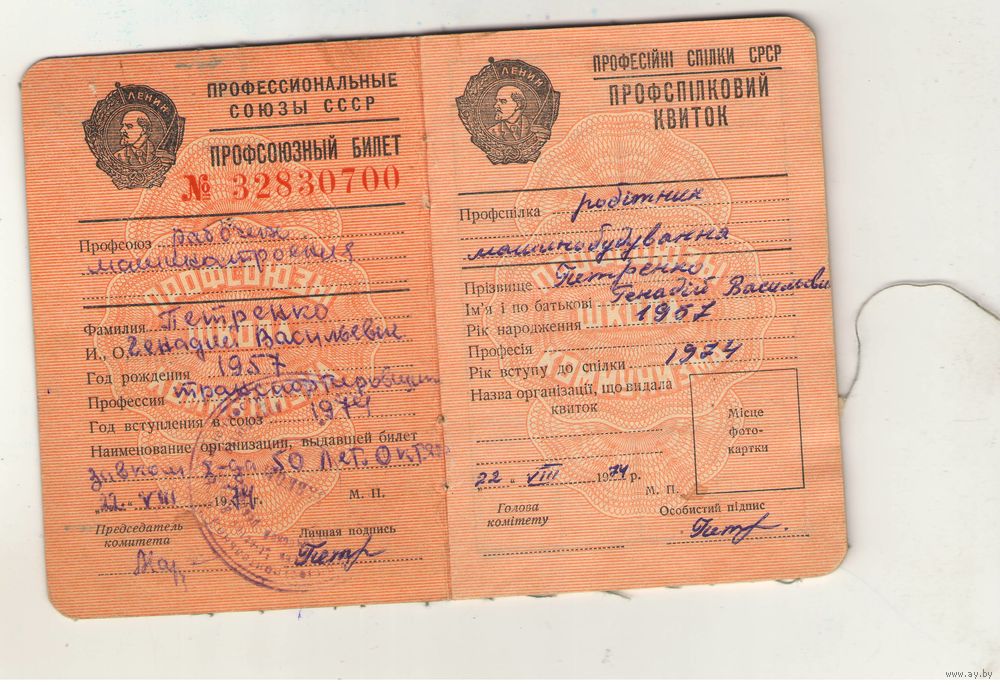 ЛЕНИН
ПРОФЕССИОНАЛЬНЫЕ
СОЮЗЫ СССР
ПРОФСОЮЗНЫЙ БИЛЕТ
№ 32830700
Профсоюз рабочих
машиностроения
Фамилия Петренко
И., О. Генадие Васильевич
Год рождения 1957
Профессия
Год вступления в союз 1974
Наименование организации, выдавшей билет
завком з-да 50 Лет. Октяб
„22" VIII 1974 г. М. П.
Председатель
комитета
Личная подпись
Петр
ЛЕНИН
ПРОФЕСІЙНІ СПІЛКИ СРСР
ПРОФСПІЛКОВИЙ
КВИТОК
Профспілка робітник
машинобудування
Прізвище Петренко
Ім'я і по батькові Генадій Васильови
Рік народження 1957
Професія
Рік вступу до спілки 1974
Назва організації, що видала
квиток
Місце
фото-
картки
„22" VIII 1974 р.
М. П.
Голова
комітету
Особистий підпис
Петр.
ПРОФСОЮЗЫ
ШКОЛА
КОММУНИЗМА
ПРОФСОЮЗЫ
ШКОЛА
КОММУНИЗМА
www.ay.by